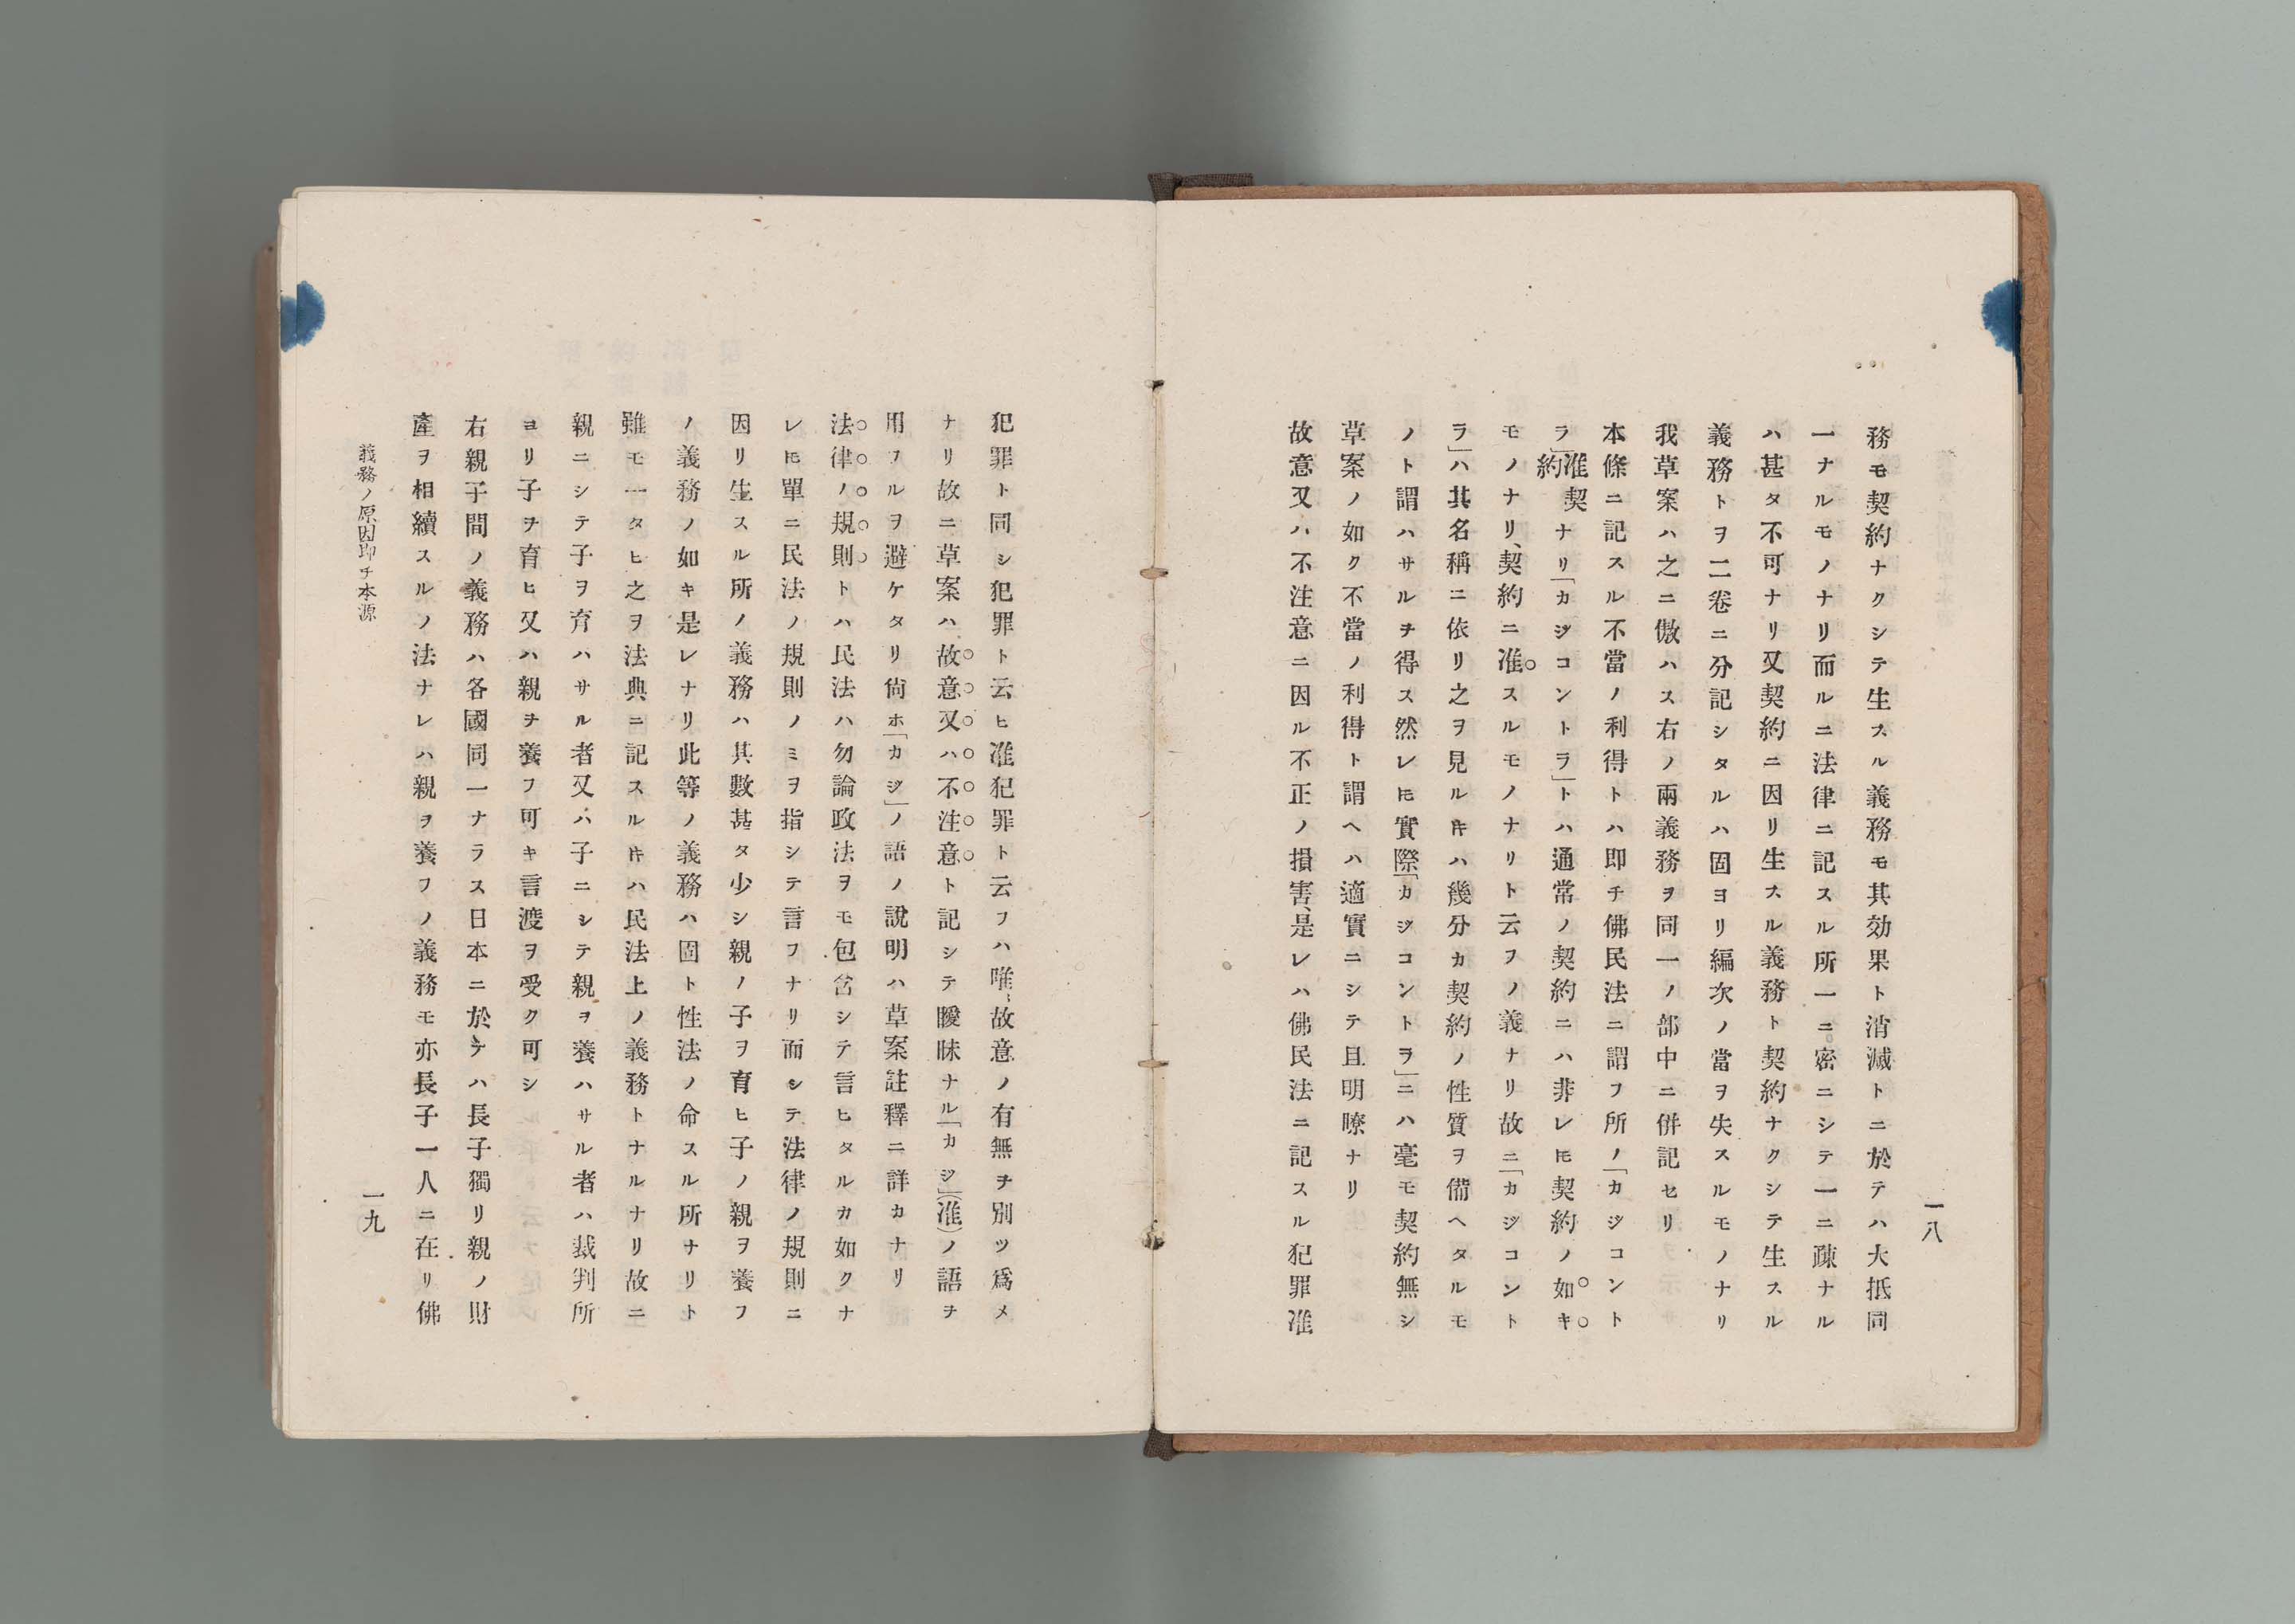 一八
務モ契約ナクシテ生スル義務モ其効果ト消滅トニ於テハ大抵同
一ナルモノナリ而ルニ法律ニ記スル所一ニ密ニシテ一ニ疎ナル
ハ甚タ不可ナリ又契約ニ因リ生スル義務ト契約ナクシテ生スル
義務トヲ二卷ニ分記シタルハ固ヨリ編次ノ當ヲ失スルモノナリ
我草案ハ之ニ傲ハス右ノ兩義務ヲ同一ノ部中ニ併記セリ
本條ニ記スル不當ノ利得トハ即チ佛民法ニ謂フ所ノ「カジコント
ラ」准契約ナリ「カジコントラ」トハ通常ノ契約ニハ非レ𪜈契約ノ如キ
モノナリ、契約ニ准スルモノナリト云ヲノ義ナリ故ニ「カジコント
ラ」ハ其名稱ニ依リ之ヲ見ルキハ幾分カ契約ノ性質ヲ備ヘタルモ
ノト謂ハサルヲ得ス然レ𪜈實際「カジコントラ」ニハ毫モ契約無シ
草案ノ如ク不當ノ利得ト謂ヘハ適實ニシテ且明瞭ナリ
故意又ハ不注意ニ因ル不正ノ損害、是レハ佛民法ニ記スル犯罪准
犯罪ト同シ犯罪ト云ヒ准犯罪ト云フハ唯、故意ノ有無ヲ別ツ爲メ
ナリ故ニ草案ハ故意又ハ不注意ト記シテ曖昧ナル「カジ」(准)ノ語ヲ
用フルヲ避ケタリ尙ホ「カジ」ノ語ノ說明ハ草案註釋ニ詳カナリ
法律ノ規則トハ民法ハ勿論政法ヲモ包含シテ言ヒタルカ如クナ
レ𪜈單ニ民法ノ規則ノミヲ指シテ言フナリ而シテ法律ノ規則ニ
因リ生スル所ノ義務ハ其數甚タ少シ親ノ子ヲ育ヒ子ノ親ヲ養フ
ノ義務ノ如キ是レナリ此等ノ義務ハ固ト性法ノ命スル所ナリト
雖モ一タヒ之ヲ法典ニ記スルキハ民法上ノ義務トナルナリ故ニ
親ニシテ子ヲ育ハサル者又ハ子ニシテ親ヲ養ハサル者ハ裁判所
ヨリ子ヲ育ヒ又ハ親ヲ養フ可キ言渡ヲ受ク可シ
右親子間ノ義務ハ各國同一ナラス日本ニ於テハ長子獨リ親ノ財
產ヲ相續スルノ法ナレハ親ヲ養フノ義務モ亦長子一人ニ在リ佛
義務ノ原因即チ本源
一九